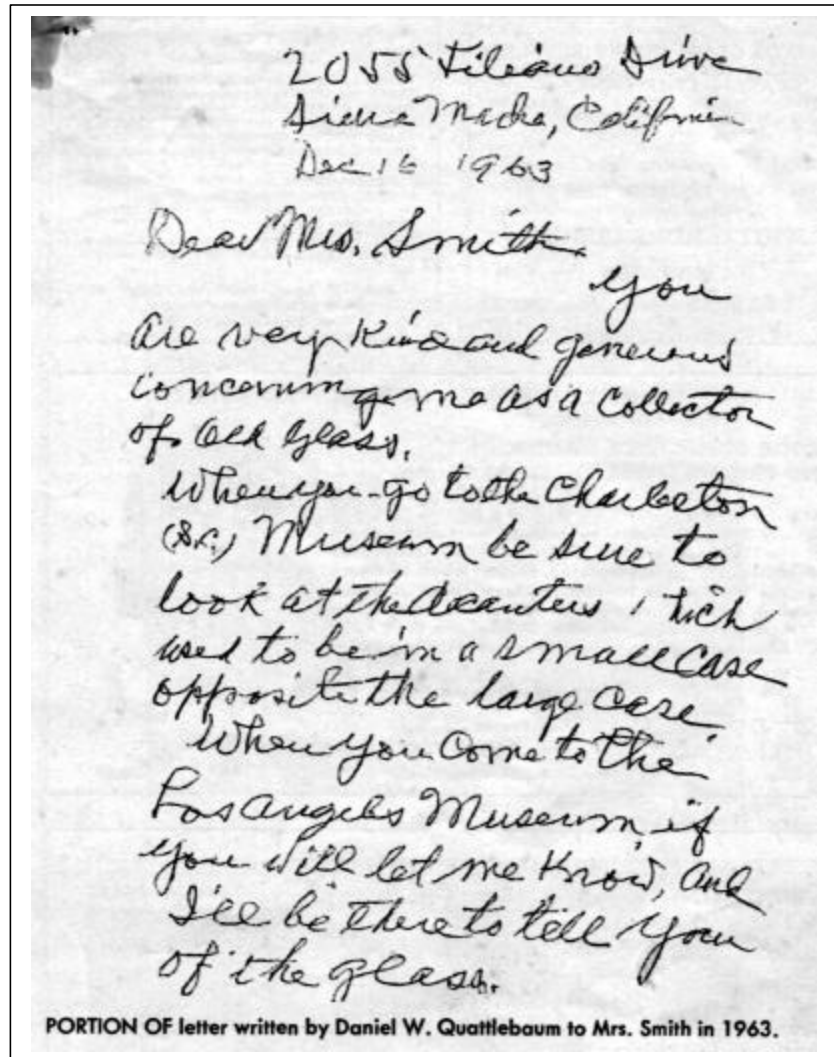 2055 Liliano Drive
Sierra Madre, California
Dec 16 1963
Dear Mrs. Smith.
You
are very kind and generous
concerning me as a collector
of old glass.
When you go to the Charleston
(S.C.) Museum be sure to
look at the decanters
used to be in a small case
opposite the large case.
When you come to the
Los Angeles Museum if
you will let me know, and
I'll be there to tell you
of the glass.
PORTION OF letter written by Daniel W. Quattlebaum to Mrs. Smith in 1963.